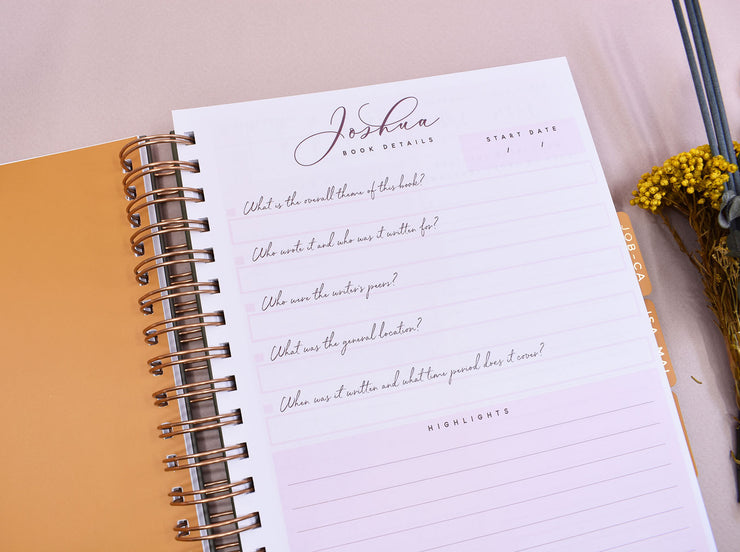 Joshua
BOOK DETAILS
START DATE
/ /
What is the overall theme of this book?
Who wrote it and who was it written for?
Who were the writer's peers?
What was the general location?
When was it written and what time period does it cover?
HIGHLIGHTS
JOB-CA
ISA-MAL